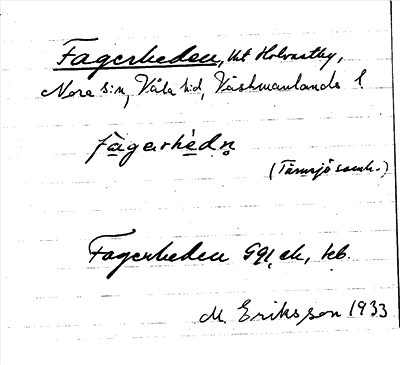 Fagerheden, ut Holvastby,
Nora s:n, Våla hd, Västmanlands l
fàgarhèdn̥
(Tärnsjö samh.)
Fagerheden G91 ek, kb.
M. Eriksson 1933